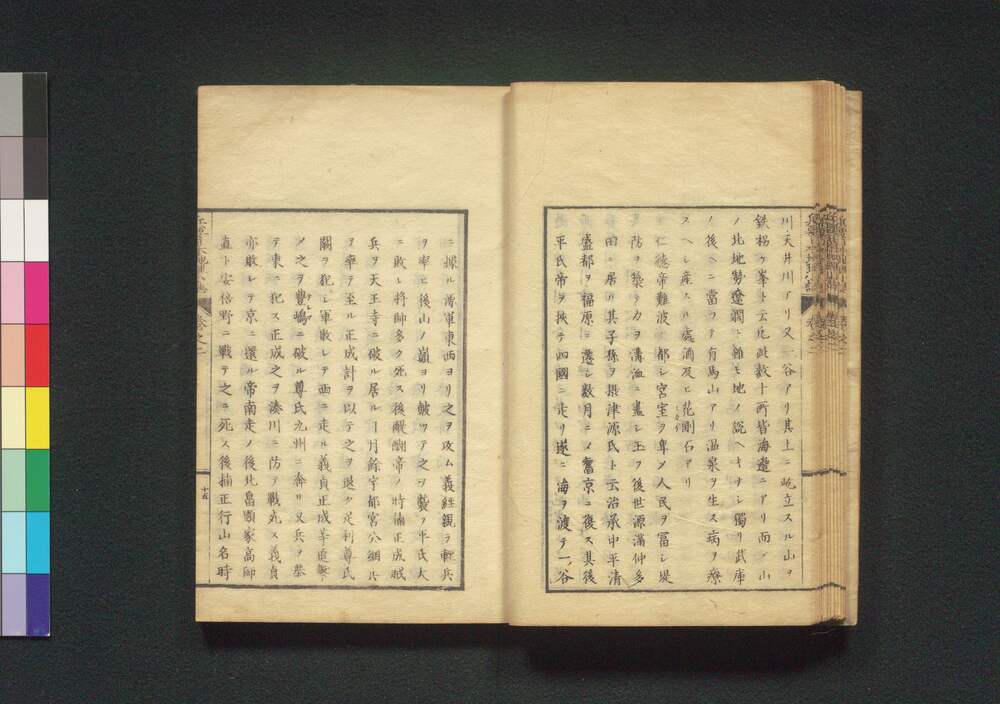 川天井川アリ又一谷アリ其上ニ屹立スル山ヲ
鉄拐ケ峯ト云凡此数十所皆海邉ニアリ而ノ山
ノ北地勢遼濶ト雖モ地ノ説ヘキナシ獨リ武庫
ノ後ヘニ當ツテ有馬山アリ温泉ヲ生ス病ヲ療
スヘシ産スル處酒及ヒ花剛石アリ
仁德帝難波ニ都シ宮室ヲ卑メ人民ヲ冨シ堤
防ヲ築キ力ヲ溝洫ニ盡シ玉フ後世源滿仲多
田ニ居リ其子孫ヲ摂津源氏ト云治承中平清
盛都ヲ福原ニ遷シ数月ニノ舊京ニ復ス其後
平氏帝ヲ挾テ四國ニ走リ遂ニ海ヲ渡テ一谷
ニ據ル源軍東西ヨリ之ヲ攻ム義經親ラ輕兵
ヲ率ヒ後山ノ嶺ヨリ皷ツテ之ヲ襲ヲ平氏大
ニ敗レ將帥多ク死ス後醍醐帝ノ時楠正成賊
兵ヲ天王寺ニ破ル居ルヿ月餘宇都宮公綱兵
ヲ率テ至ル正成計ヲ以テ之ヲ退ク足利尊氏
闕ヲ犯シ軍敗レテ西ニ走ル義貞正成等追撃
メ之ヲ豐嶋ニ破ル尊氏九州ニ奔リ又兵ヲ挙
テ東ニ犯ス正成之ヲ湊川ニ防テ戰死ス義貞
亦敗レテ京ニ還ル帝南走ノ後北畠顕家高師
直ト安倍野ニ戰テ之ニ死ス後楠正行山名時
十五